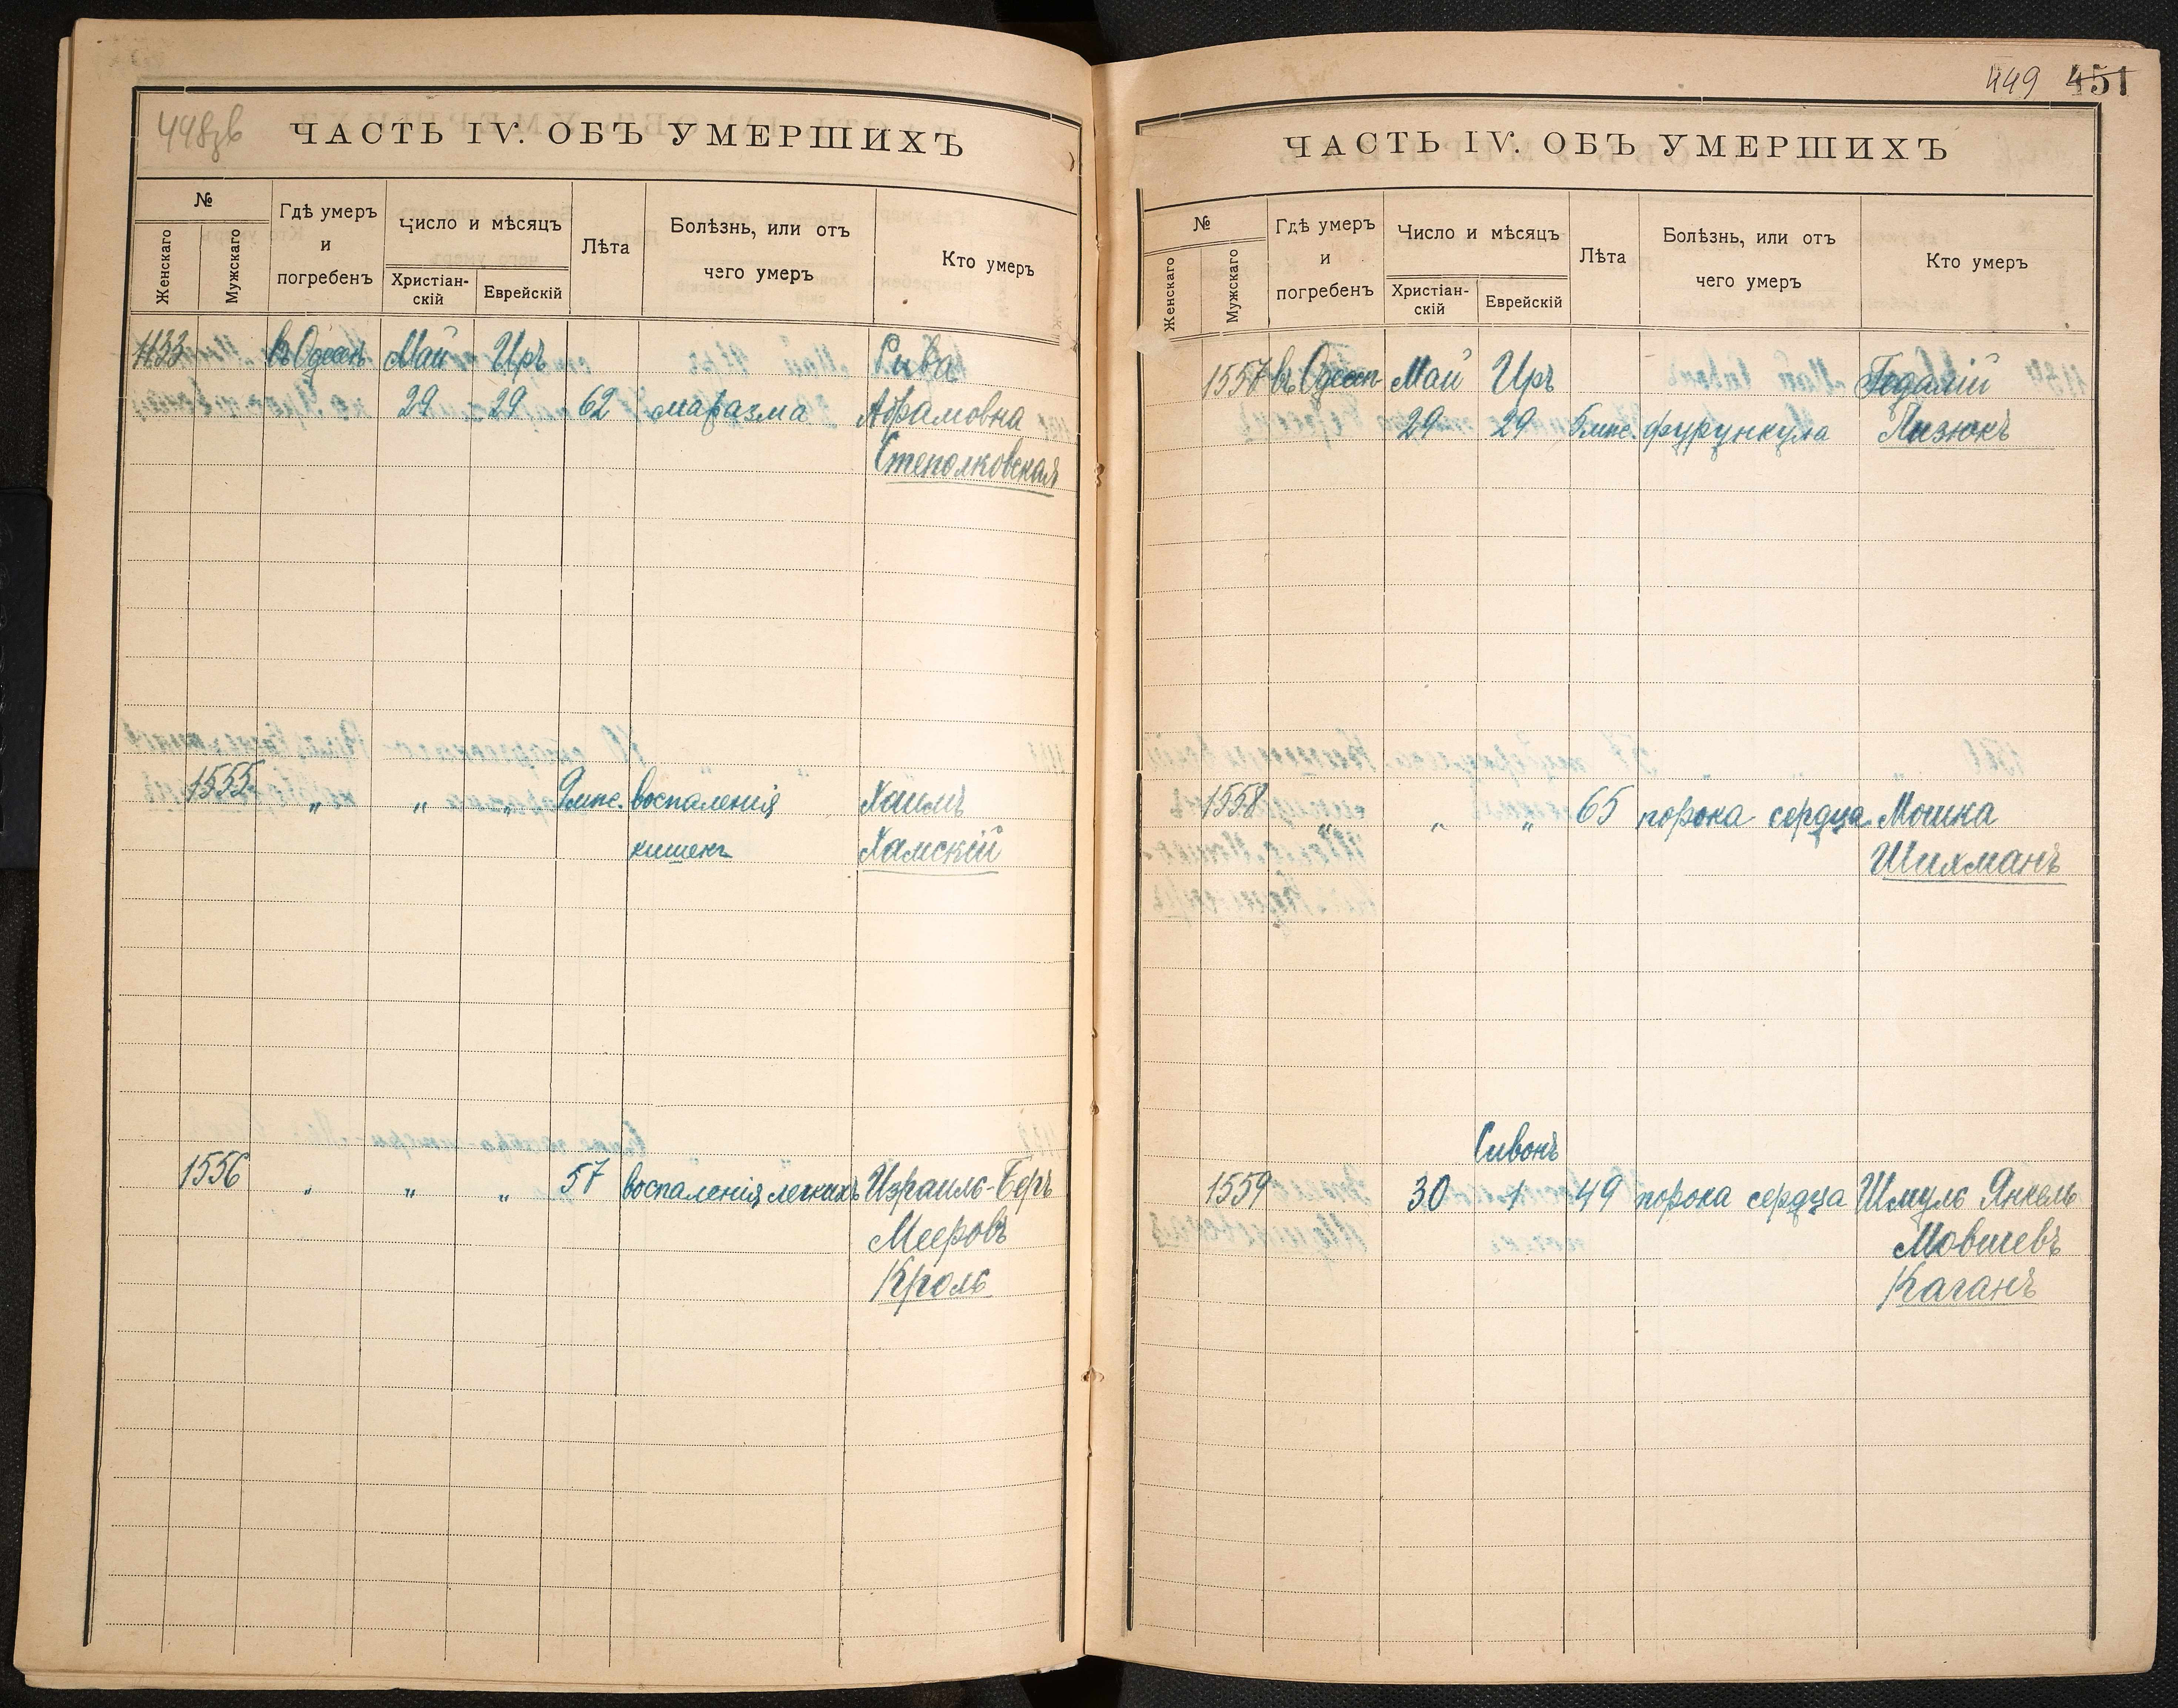 448зв
ЧАСТЬ IV. ОБЪ УМЕРШИХЪ
№
Женскаго
Мужскаго
Гдѣ умеръ
и
погребенъ
Число и мѣсяцъ
Христіан-
скій
Еврейскій
Лѣта
Болѣзнь, или отъ
чего умеръ
Кто умеръ
1133 въ Одессѣ Май Иръ Рива
29 29 62 маразма Абрамовна
Степолковская
1555 „ „ „ 9 мѣс. воспаленія Хаимъ
кишекъ Хамскій
1556 „ „ „ 57 воспаленія легкихъ Израиль-Беръ
Мееровъ
Кроль
449 451
ЧАСТЬ IV. ОБЪ УМЕРШИХЪ
№
Женскаго
Мужскаго
Гдѣ умеръ
и
погребенъ
Число и мѣсяцъ
Христіан-
скій
Еврейскій
Лѣта
Болѣзнь, или отъ
чего умеръ
Кто умеръ
1557 въ Одессѣ Май Иръ Гедалій
29 29 мѣс. фурункула Пизюкъ
1558 „ „ „ 65 порока сердца Мошка
Шихманъ
Сивонъ
1559 30 1 49 порока сердца Шмуль Янкель
Мовшевъ
Каганъ